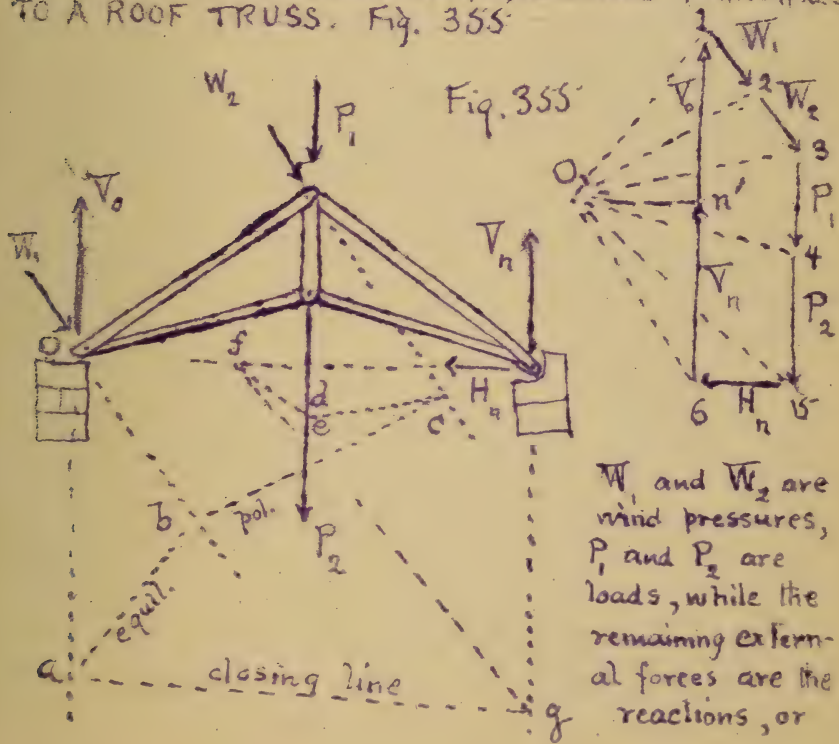 TO A ROOF TRUSS. Fig. 355
Fig. 355
W2
P1
V0
W1
O
Vn
Hn
f
d
e
c
b
pol.
P2
equil.
a
closing line
g
1
W1
V0
2
W2
3
O
n'
P1
4
Vn
P2
6
Hn
5
W1 and W2 are
wind pressures,
P1 and P2 are
loads, while the
remaining extern-
al forces are the
reactions, or